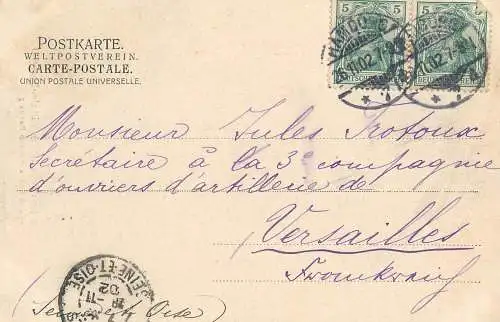 POSTKARTE.
WELTPOSTVEREIN.
CARTE-POSTALE.
UNION POSTALE UNIVERSELLE.
5 5 5
HAMBURG
11.02.7-8
Monsieur Jules Trotoux
Secrétaire à la 3e compagnie
d'ouvriers d'artillerie de
Versailles
Frankreich
(Seine et Oise)
SEINE-ET-OISE
02